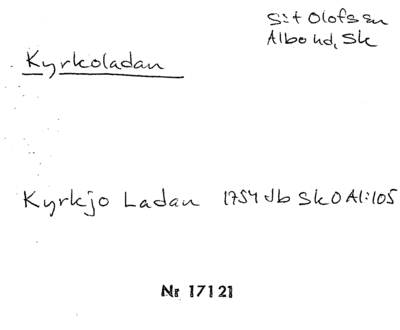 S:t Olofs sn
Albo hd, Sk
Kyrkoladan
Kyrkjo Ladan 1754 Jb Sk O Al:105
Nr 17121